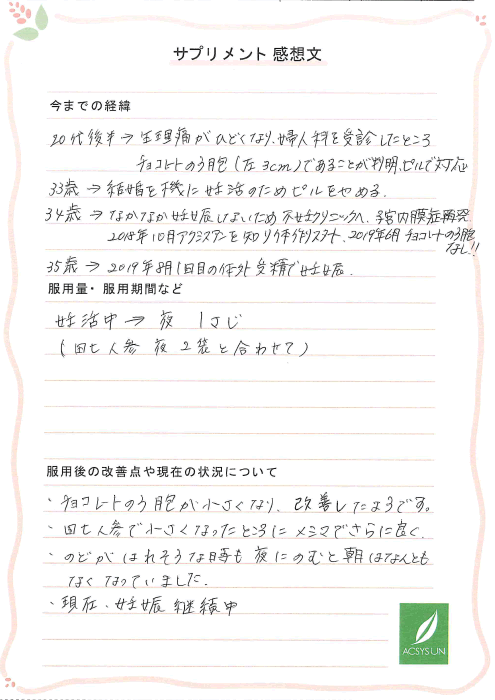 サプリメント 感想文
今までの経緯
20代後半→生理痛がひどくなり、婦人科を受診したところ
チョコレートのう胞(左3cm)であることが判明、ピルで対応
33歳→結婚を機に妊活のためピルをやめる。
34歳→なかなか妊娠しないため不妊クリニックへ、子宮内膜症再発
2018年10月アクシスアンを知り体作りスタート、2019年6月チョコレートのう胞
なし!!
35歳→2019年8月1回目の体外受精で妊娠.
服用量・服用期間など
妊活中→夜 1さじ
(田七人参 夜 2袋と合わせて)
服用後の改善点や現在の状況について
・チョコレートのう胞が小さくなり、改善したようです。
・田七人参で小さくなったところにメシマでさらに良く、
・のどがはれそうな時も夜にのむと朝はなんとも
なくなっていました.
・現在、妊娠継続中
ACSYSUN